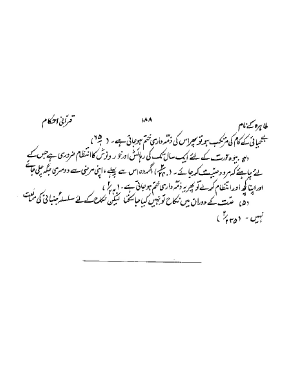 طاہرہ کے نام ۱۸۸ قرآنی احکام
بے حیائی کے کام کی مرتکب ہو تو پھر اس کی ذمہ داری ختم ہو جاتی ہے۔ (۶۵)
بیوہ عورت کے لئے ایک سال تک کی رہائش اور خور و نوش کا انتظام ضروری ہے جس کے
لئے چاہئے کہ مرد وصیت کر جائے۔ اگر وہ اس سے پہلے، اپنی مرضی سے دوسری جگہ چلی جائے
اور اپنا کچھ اور انتظام کر لے تو پھر یہ ذمہ داری ختم ہو جاتی ہے۔
(۵) عدت کے دوران میں نکاح تو نہیں کیا جا سکتا لیکن نکاح کے لئے سلسلہ جنبانی کی ممانعت
نہیں۔ (۲۳۵/۲)